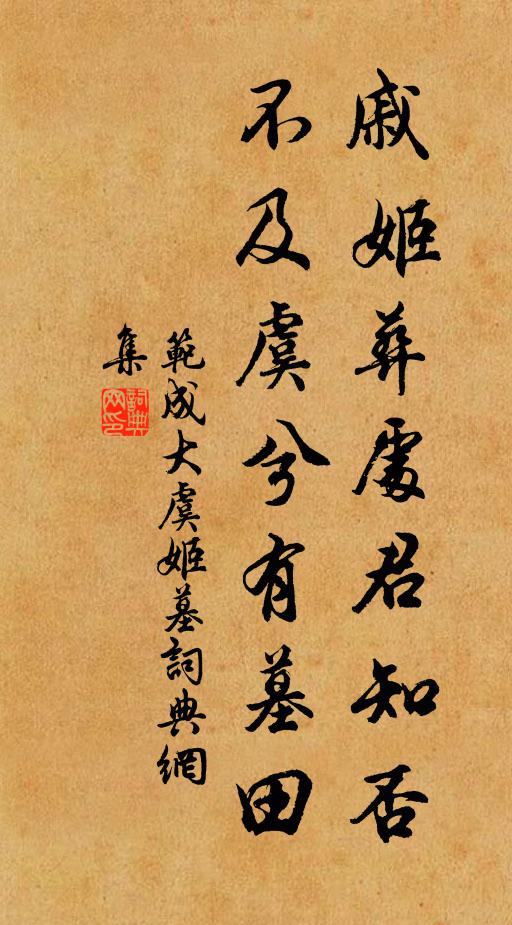 戚姬葬處君知否
不及虞兮有墓田
範成大虞姬墓詞典網
集
詞典網印